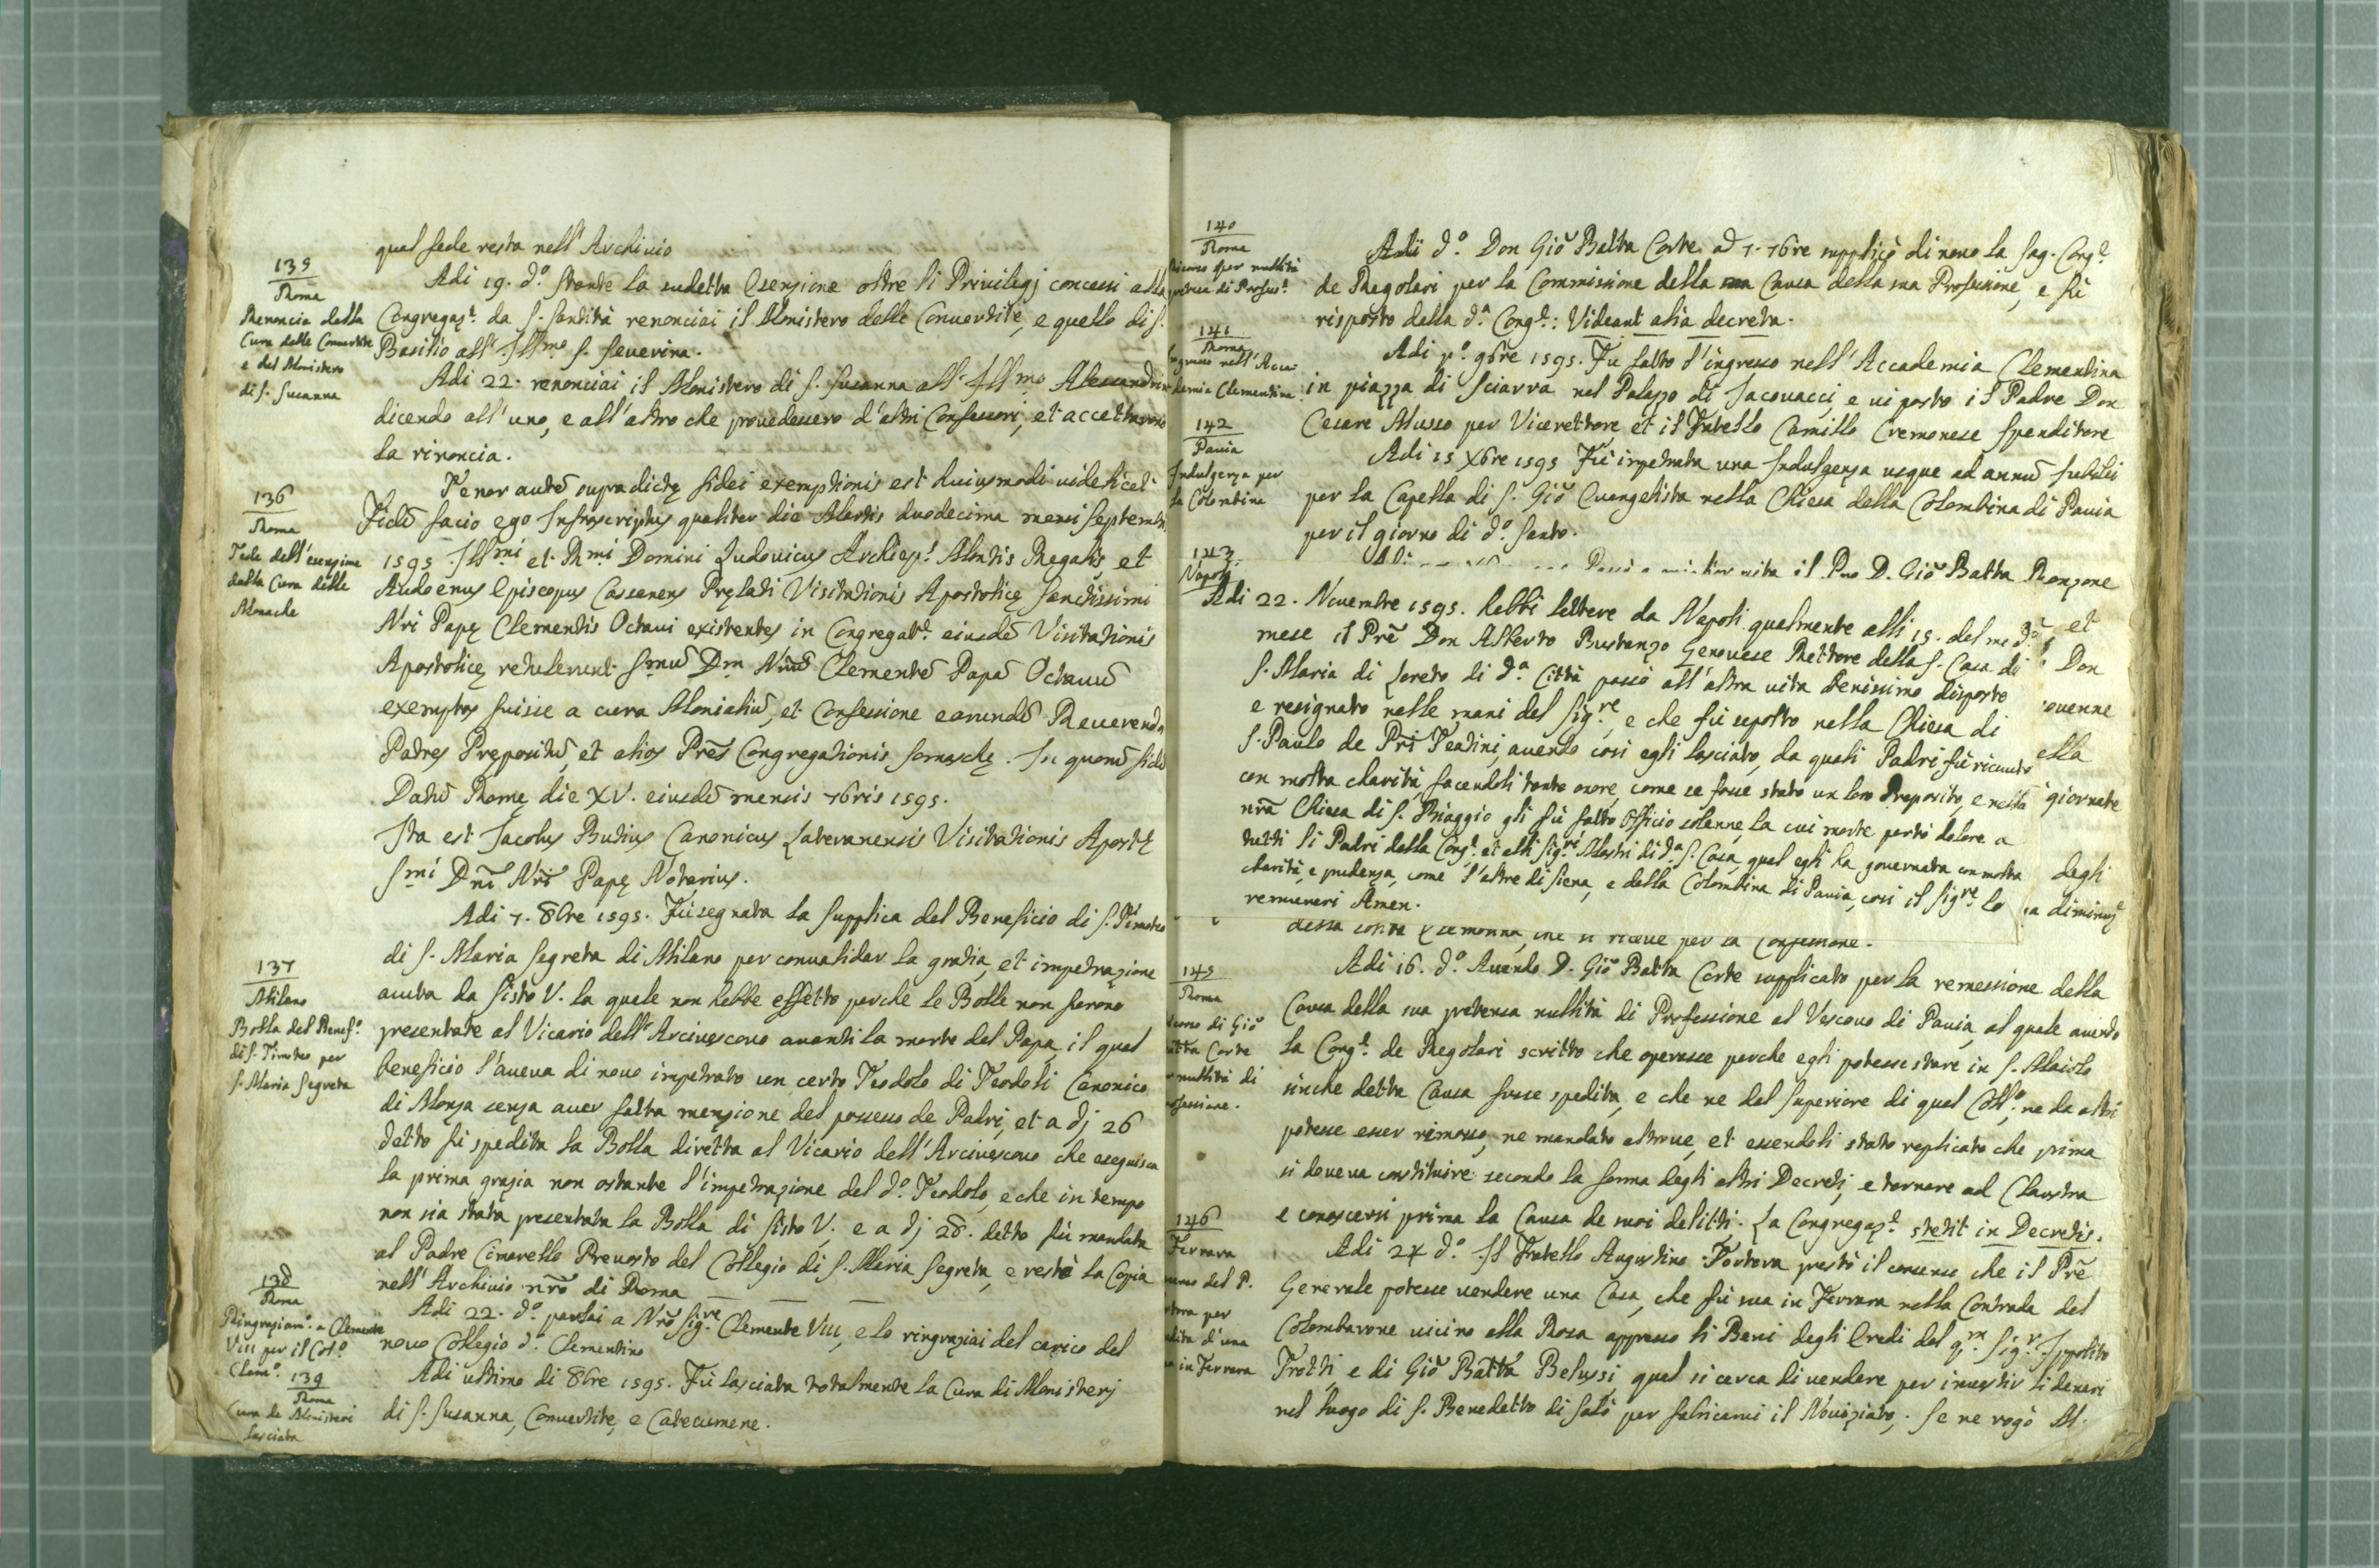 qual fede resta nell'Archivio
135
Roma
Renoncia della
Cura delle Convertite
e del Monistero
di S. Susanna
Adi 19. d.º stante la sudetta Esenzione oltre li Privilegj concessi alla
Congregaz.e da S. Santità renonciai il Monistero delle Convertite, e quello di S.
Basilio all'Ill.mo S. Severina.
Adi 22. renonciai il Monistero di S. Susanna all'Ill.mo Alessandrin
dicendo all'uno, e all'altro che provedessero d'altri Confessori, et accettarono
la rinoncia.
136
Roma
Fede dell'esenzione
dalla Cura delle
Monache
Tenor autẽ supradictę fidei exemptionis est huiusmodi videlicet
Fidẽ facio ego Infrascriptus qualiter die Martis duodecima mensi Septembr
1595 Ill.mi et R.mi Domini Ludovicus Archiep.s Montis Regalis et
Audoenus Episcopus Cassanens Pręlati Visitationis Apostolicę Sanctissimi
Nri Papę Clementis Octavi existentes in Congregat.e eiusdẽ Visitationis
Apostolicę retulerunt Smũ Dm Nrũ Clementẽ Papã Octavũ
exemptos fuisse a cura Monialiũ, et Confessione earundẽ Reverendos
Padres Prepositũ, et alios Prẽs Congregationis Somaschę. In quorũ fidẽ
Datũ Romę die XV. eiusdẽ mensis 7bris 1595.
Ita est Jacobus Butius Canonicus Lateranensis Visitationis Apost.ę
S.mi Dñi Nri Papę Notarius.
137
Milano
Bolla del Benef.º
di S. Timoteo per
S. Maria Segreta
Adi 7. 8bre 1595. Fù segnata la Supplica del Beneficio di S. Timoteo
di S. Maria Segreta di Milano per convalidar la gratia, et impetrazione
avuta da Sisto V. la quale non hebbe effetto perche le Bolle non furono
presentate al Vicario dell'Arcivescovo avanti la morte del Papa, il qual
beneficio l'aveva di novo impetrato un certo Teodolo di Teodoli Canonico
di Monza senza aver fatta menzione del possesso de Padri, et a dj 26
detto fù spedita la Bolla diretta al Vicario dell'Arcivescovo che eseguisca
la prima grazia non ostante l'impetrazione del d.º Teodolo, e che in tempo
non sia stata presentata la Bolla di Sisto V. e a dj 28. detto fù mandata
al Padre Cimarello Prevosto del Collegio di S. Maria Segreta, e restò la Copia
nell'Archivio nrõ di Roma
138
Roma
Ringraziam.º a Clemente
VIII per il Col.º
Clem.º
Adi 22. d.º parlai a Nrõ Sig.re Clemente VIII, e lo ringraziai del carico del
novo Collegio d.º Clementino
139
Roma
Cura de Monisteri
lasciata
Adi ultimo di 8bre 1595. Fù lasciata totalmente la Cura di Monisterj
di S. Susanna, Convertite, e Catecumene.
140
Roma
per nullità
di Profess.e
Adi d.º Don Giõ Batta Corte ad 7. 76re supplicò di novo la Sag. Cong.e
de Regolari per la Commissione della Causa della sua Professione, e fù
risposto della d.a Cong.e: Videant alia decreta.
141
Roma
nell'Acca-
demia Clementina
Adi p.º 9bre 1595. Fu fatto l'ingresso nell'Accademia Clementina
in piazza di Sciarra nel Palazzo di Jacovacci, e vi posto il Padre Don
Cesare Musso per Vicerettore, et il Fratello Camillo Cremonese Spenditore
142
Pavia
Indulgenza per
la Colombina
Adi 15 Xbre 1595 Fù impetrata una Indulgenza usque ad annũ Jubilei
per la Capella di S. Giõ Evangelista nella Chiesa della Colombina di Pavia
per il giorno di d.º Santo.
143
Napoli
vita il Pre D. Giõ Batta Ronzone
Adi 22. Novembre 1595. hebbi lettere da Napoli qualmente alli 15. del med.º
mese il Prẽ Don Alberto Bustanzo Genovese Rettore della S. Casa di
S. Maria di Loreto di d.a Città passò all'altra vita benissimo disposto
e resignato nelle mani del Sig.re, e che fù sepolto nella Chiesa di
S. Paulo de Pri Teatini, avendo così egli lasciato, da quali Padri fù ricevuto
con molta charità, facendoli tanto onore, come se fosse stato un loro Preposito, e nella
nrã Chiesa di S. Biaggio gli fù fatto Officio solenne, la cui morte portò dolore a
tutti li Padri della Cong.e et alli Sig.ri Mastri di d.a S. Casa, qual egli ha governata con molta
charità, e prudenza, come l'altre di Siena, e della Colombina di Pavia, così il Sig.re lo
remuneri Amen.
et
Don
ovenne
ella
giornate
degli
a diminuz.e
che si riceve per la Confessione.
145
Roma
di Giõ
Batta Corte
nullità di
Professione.
Adi 16. d.º Avendo D. Giõ Batta Corte supplicato per la remessione della
Causa della sua pretensa nullità di Professione al Vescovo di Pavia, al quale avendo
la Cong.e de Regolari scritto che operasse perche egli potesse stare in S. Maiolo
sinche detta Causa fusse spedita, e che ne dal Superiore di quel Coll.º, ne da altri
potesse esser rimosso, ne mandato altrove, et essendoli stato replicato che prima
si doveva constituire secondo la forma degli altri Decreti, e tornare ad Claustra
e conoscersi prima la Causa de suoi delitti. La Congregaz.e stetit in Decretis.
146
Ferrara
del P.
per
di una
in Ferrara
Adi 27 d.º Il Fratello Augustino Tortora prestò il consenso che il Prẽ
Generale potesse vendere una Casa, che fù sua in Ferrara nella Contrada del
Colombarone vicino alla Rosa appresso li Beni degli Eredi del q.m Sig.r Ippolito
Trotti e di Giõ Batta Belussi, qual si cerca di vendere per investir li denari
nel luogo di S. Benedetto di Salò per fabricarvi il Noviziato. Se ne rogò M.